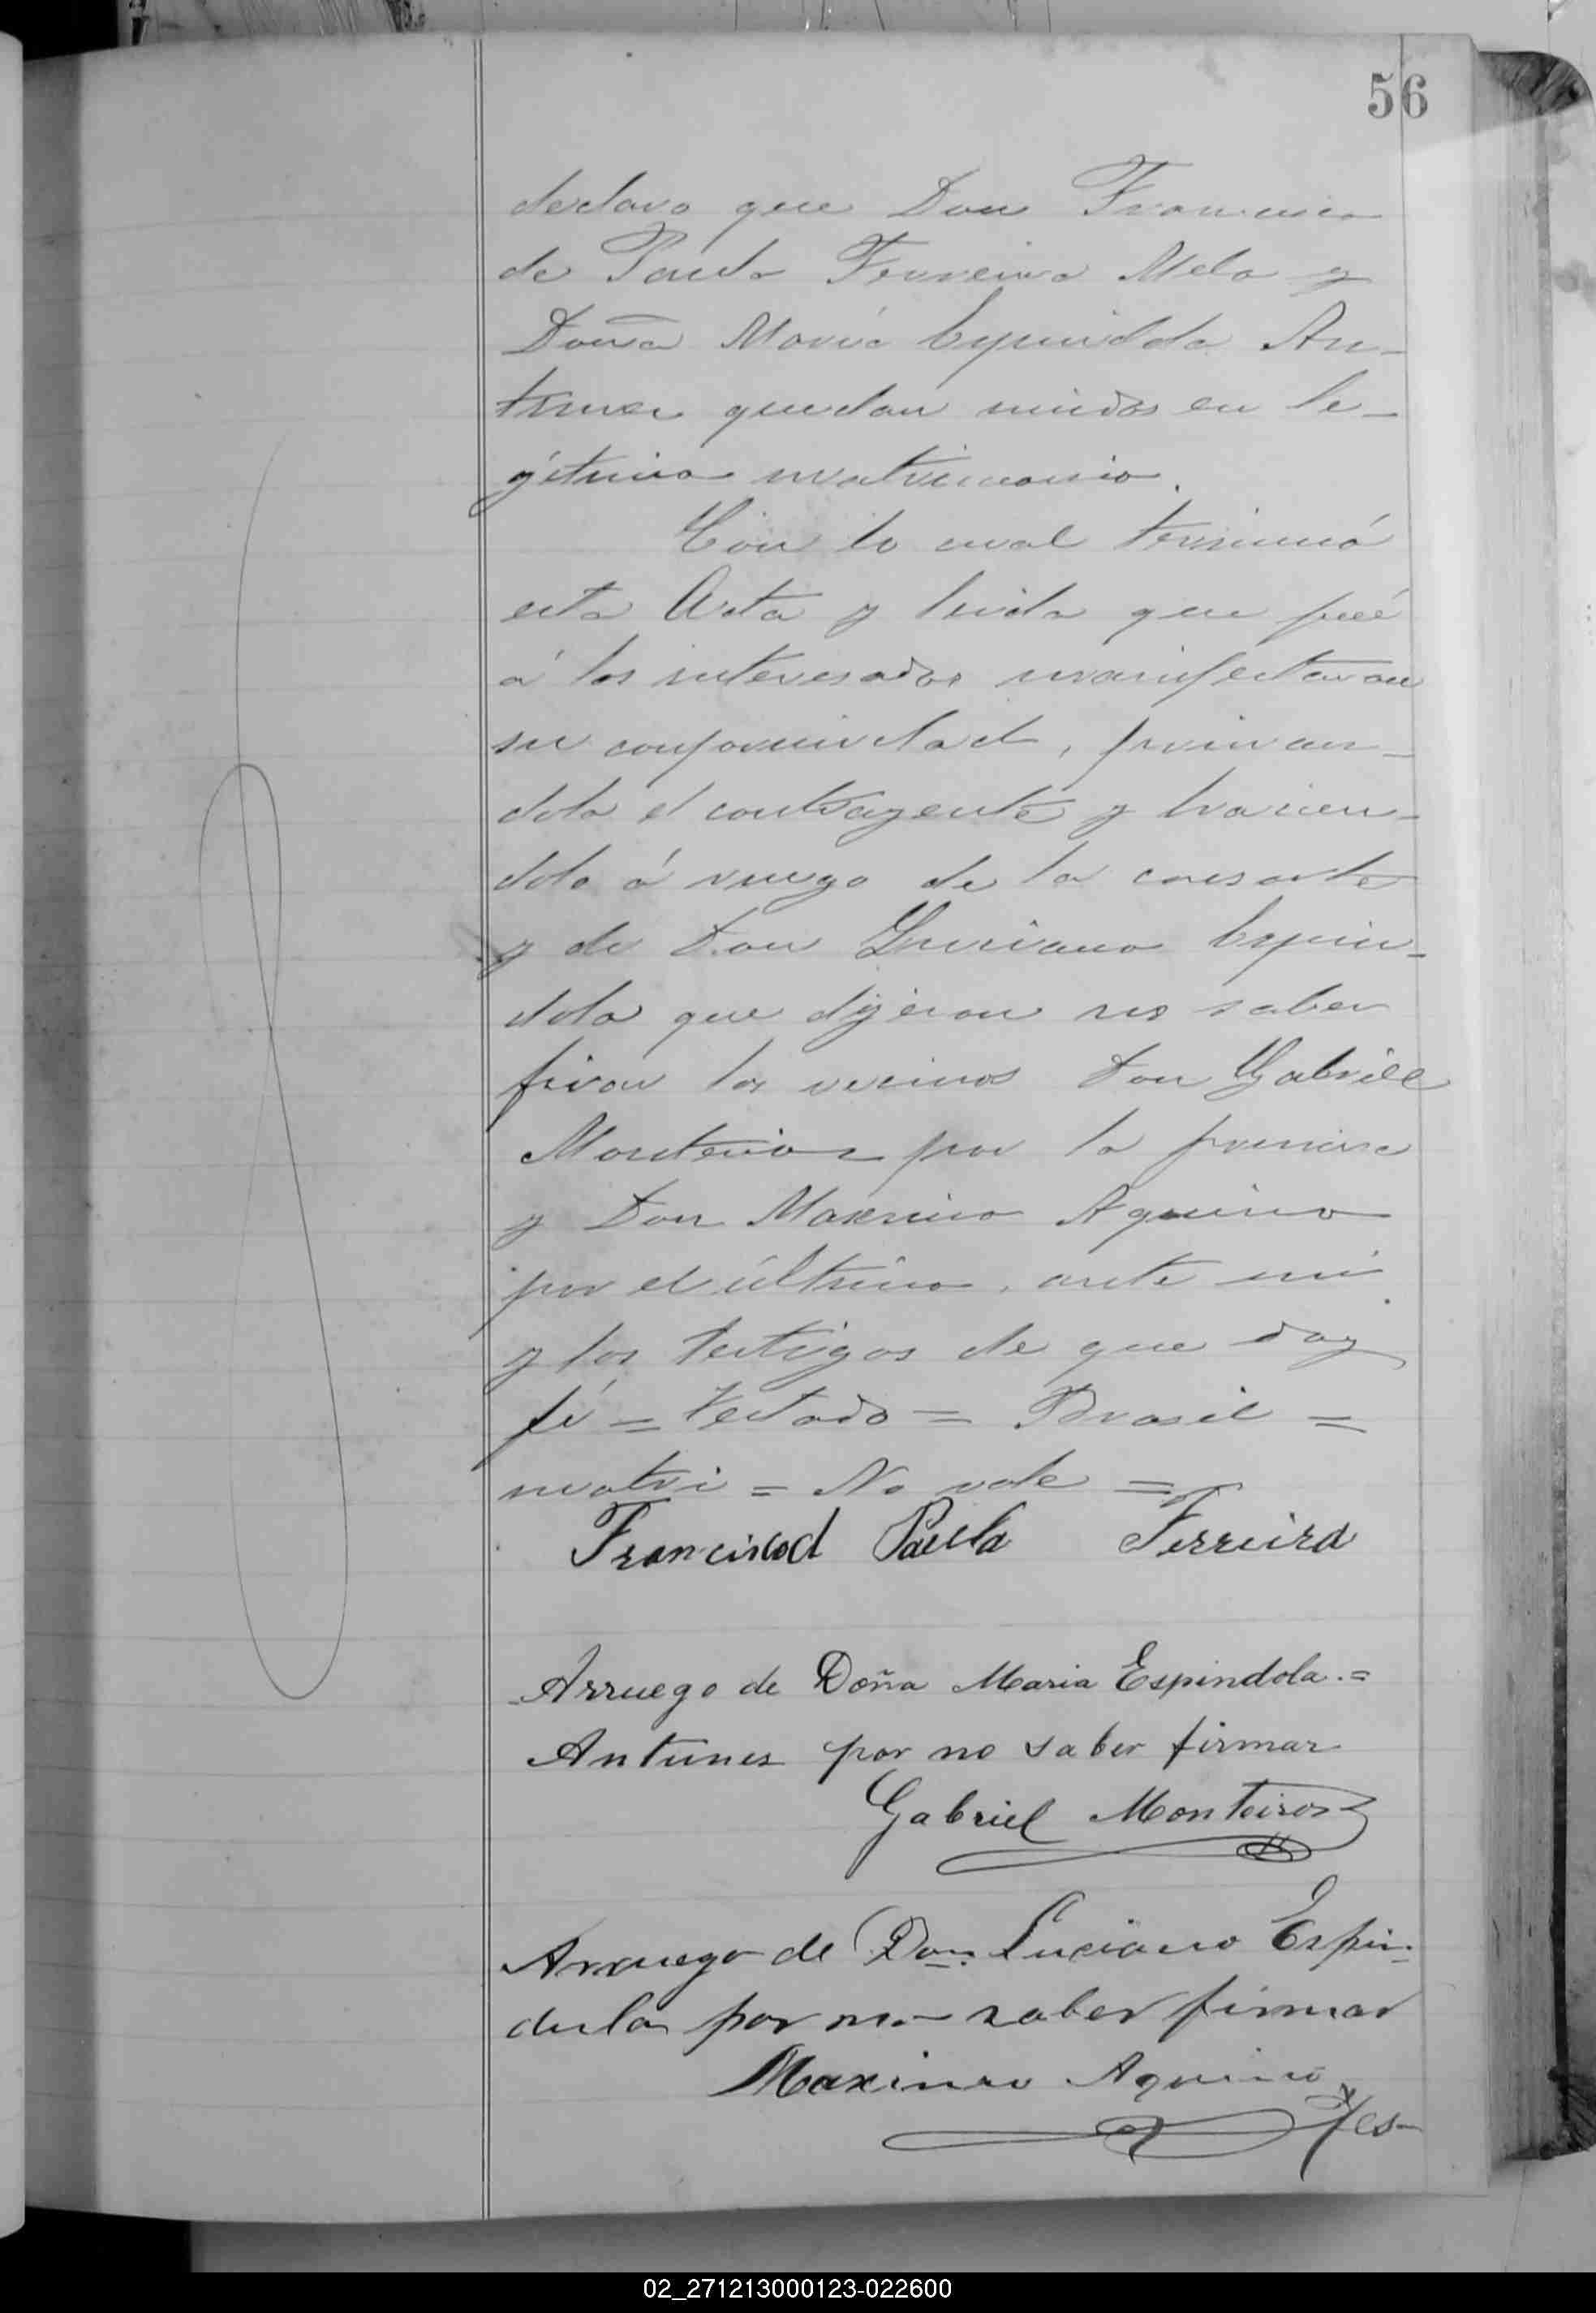 56
declaro que Don Francisco
de Paula Ferreira Melo y
Doña María Espindola An-
tunez quedan unidos en le-
gítimo matrimonio.
Con lo cual terminó
esta Acta y leida que fué
á los interesados manifestaron
su conformidad, firman-
dola el contrayente y hacien-
dolo á ruego de la consorte
y de Don Luciano Espin-
dola que dijeron no saber
firar los vecinos Don Gabriel
Monteiro por la primera
y Don Maximo Aquino
por el último, ante mi
y los testigos de que doy
fé = Testado = Brasil =
matri = No vale =
Francisco d Paula Ferreira
Arruego de Doña Maria Espindola.=
Antunes por no saber firmar
Gabriel Monteiro
Arruego de Don Luciano Espin-
dula por no saber firmar
Maximo Aquino
02_271213000123-022600